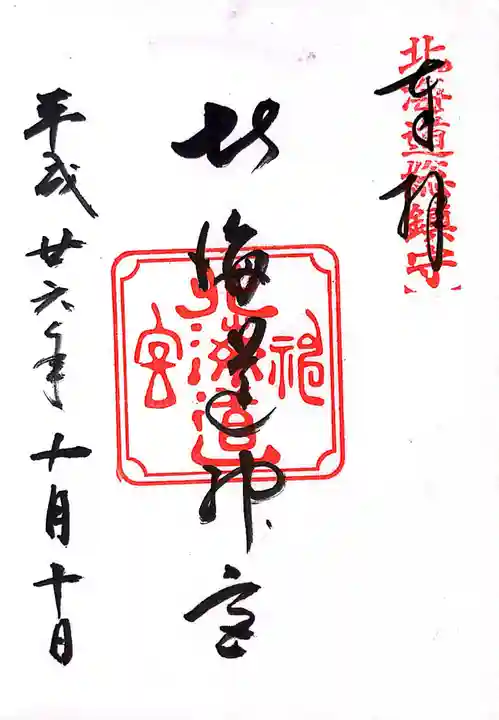 北海道総鎮守
奉拝
北海道神宮
北海道
神宮
平成廿六年十月十日